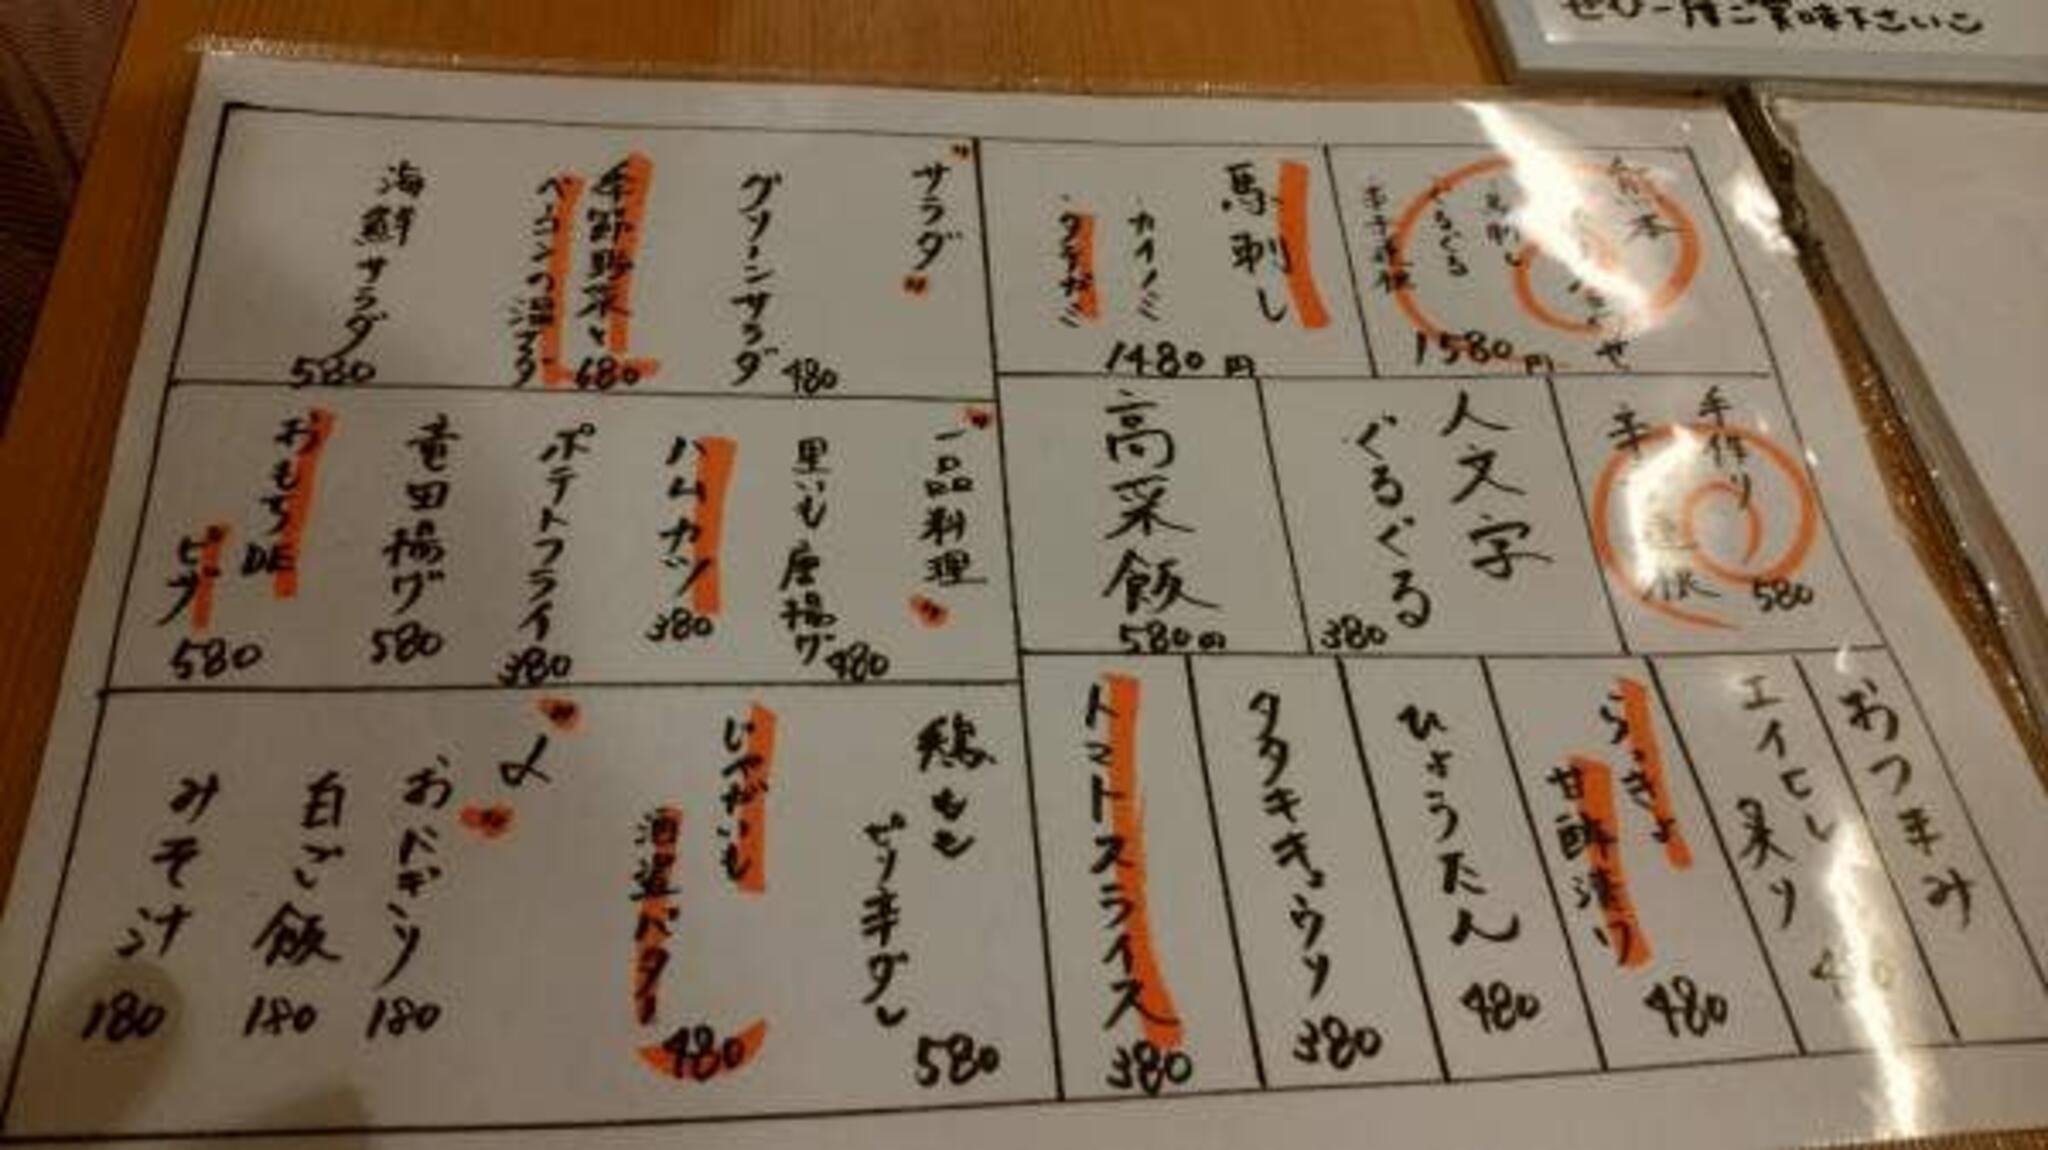 ぜひ一度ご賞味下さい
熊本
馬刺し
ぐるぐる
辛子蓮根
1580円
馬刺し
カイノミ
フタガミ
1480円
"サラダ"
グリーンサラダ
480
季節野菜と
ベーコンの温サダ
680
海鮮サラダ
580
手作り
辛子蓮根
580
人文字
ぐるぐる
380
高菜飯
580円
"一品料理"
里いも唐揚げ
480
ハムカツ
380
ポテトフライ
380
竜田揚げ
580
おもちDE
ピザ
580
おつまみ
エイヒレ
炙り
480
らっきょ
甘酢漬け
480
ひょうたん
480
タタキキュウリ
380
トマトスライス
380
鶏もも
ピリ辛ダレ
580
じゃがいも
酒盗バター
480
"〆"
おにぎり
180
白ご飯
180
みそ汁
180